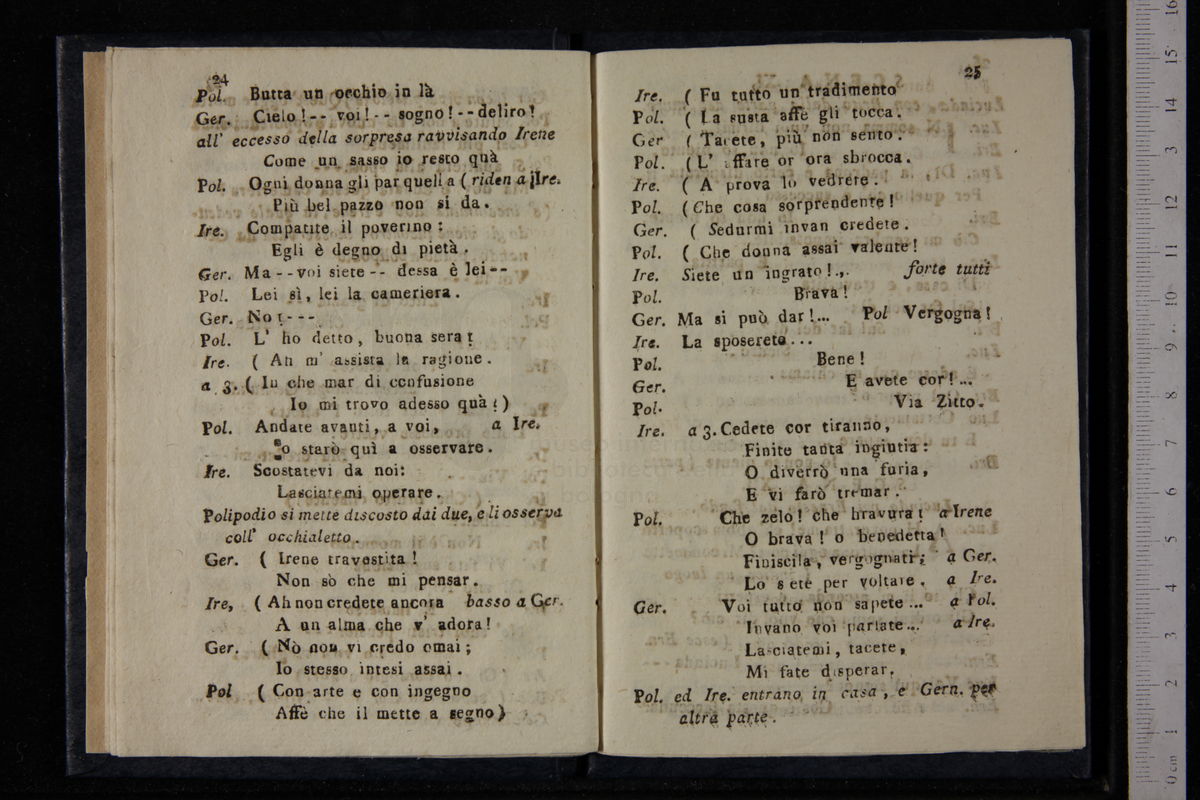 24
Pol. Butta un occhio in là
Ger. Cielo!-- voi!-- sogno!--deliro!
all' eccesso della sorpresa ravvisando Irene
Come un sasso io resto quà
Pol. Ogni donna gli par quella (riden a Ire.
Più bel pazzo non si da.
Ire. Compatite il poverino:
Egli è degno di pietà.
Ger. Ma--voi siete-- dessa è lei--
Pol. Lei sì, lei la cameriera.
Ger. No!---
Pol. L' ho detto, buona sera!
Ire. ( Ah m' assista la ragione.
a 3. ( In che mar di confusione
Io mi trovo adesso quà!)
Pol. Andate avanti, a voi, a Ire.
Io starò quì a osservare.
Ire. Scostatevi da noi:
Lasciatemi operare.
Polipodio si mette discosto dai due, e li osserva
coll' occhialetto.
Ger. ( Irene travestita!
Non sò che mi pensar.
Ire, ( Ah non credete ancora basso a Ger.
A un alma che v' adora!
Ger. ( Nò non vi credo omai;
Io stesso intesi assai.
Pol ( Con arte e con ingegno
Affè che il mette a segno)
25
Ire. ( Fu tutto un tradimento
Pol. ( La susta affè gli tocca.
Ger ( Tacete, più non sento.
Pol. ( L' affare or ora sbrocca.
Ire. ( A prova lo vedrete.
Pol. (Che cosa sorprendente!
Ger. ( Sedurmi invan credete.
Pol. ( Che donna assai valente!
Ire. Siete un ingrato!.,. forte tutti
Pol. Brava!
Ger. Ma si può dar!... Pol Vergogna!
Ire. La sposerete...
Pol. Bene!
Ger. E avete cor!...
Pol. Via Zitto.
Ire. a 3. Cedete cor tiranno,
Finite tanta ingiutia:
O diverrò una furia,
E vi farò tremar.
Pol. Che zelo! che bravura! a Irene
O brava! o benedetta!
Finiscila, vergognati; a Ger.
Lo s ete per voltare. a Ire.
Ger. Voi tutto non sapete... a Pol.
Invano voi parlate... a Ire.
Lasciatemi, tacete,
Mi fate disperar.
Pol. ed Ire. entrano in casa, e Gern. per
altra parte.
0 cm 1 2 3 4 5 6 7 8 9 10 11 12 13 14 15 16